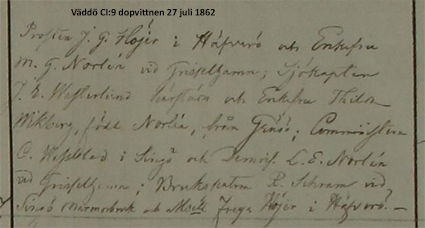 Väddö CI:9 dopvittnen 27 juli 1862
Prosten J. G. Höjer i Häfverö och Enkefru
M. G. Norlén vid Grisslehamn; Sjökapten
J. E. Westerlund och Enkefru Thilda
Wikberg, född Norlén, från
C. Wefelblad i Singö och Demois. L. E. Norlén
vid Grisslehamn; Brukspatron R. Schram vid
Singö Marmorbrok och Mselle Freja Höjer i Häfverö. —